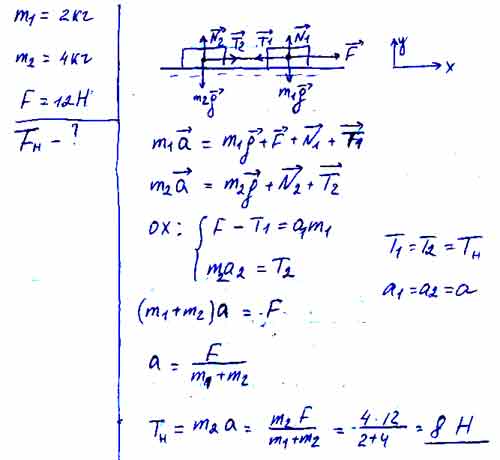 m₁ = 2кг
m₂ = 4кг
F = 12Н
Fн – ?
N⃗₂ T⃗₂ T⃗₁ N⃗₁ F⃗
m₂g⃗ m₁g⃗
y
x
m₁a⃗ = m₁g⃗ + F⃗ + N⃗₁ + T⃗₁
m₂a⃗ = m₂g⃗ + N⃗₂ + T⃗₂
ox: { F – T₁ = a₁m₁
m₂a₂ = T₂
T₁ = T₂ = Tн
a₁ = a₂ = a
(m₁+m₂)a = F
a = F / (m₁+m₂)
Tн = m₂a = m₂F / (m₁+m₂) = 4·12 / (2+4) = 8 Н